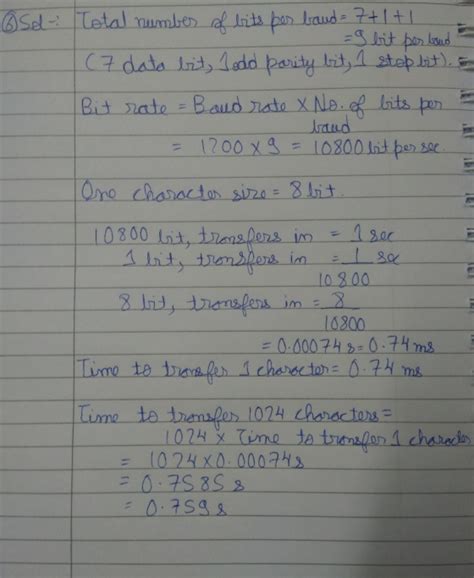 ⑥ Sol -: Total number of bits per baud = 7+1+1
= 9 bit per baud
(7 data bit, 1 odd parity bit, 1 stop bit).
Bit rate = Baud rate × No. of bits per
baud
= 1200 × 9 = 10800 bit per sec.
One character size = 8 bit.
10800 bit, transfers in = 1 sec
1 bit, transfers in = 1 sec
10800
8 bit, transfers in = 8
10800
= 0.00074 s = 0.74 ms
Time to transfer 1 character = 0.74 ms
Time to transfer 1024 characters =
1024 × Time to transfer 1 character
= 1024 × 0.00074 s
= 0.7585 s
= 0.759 s